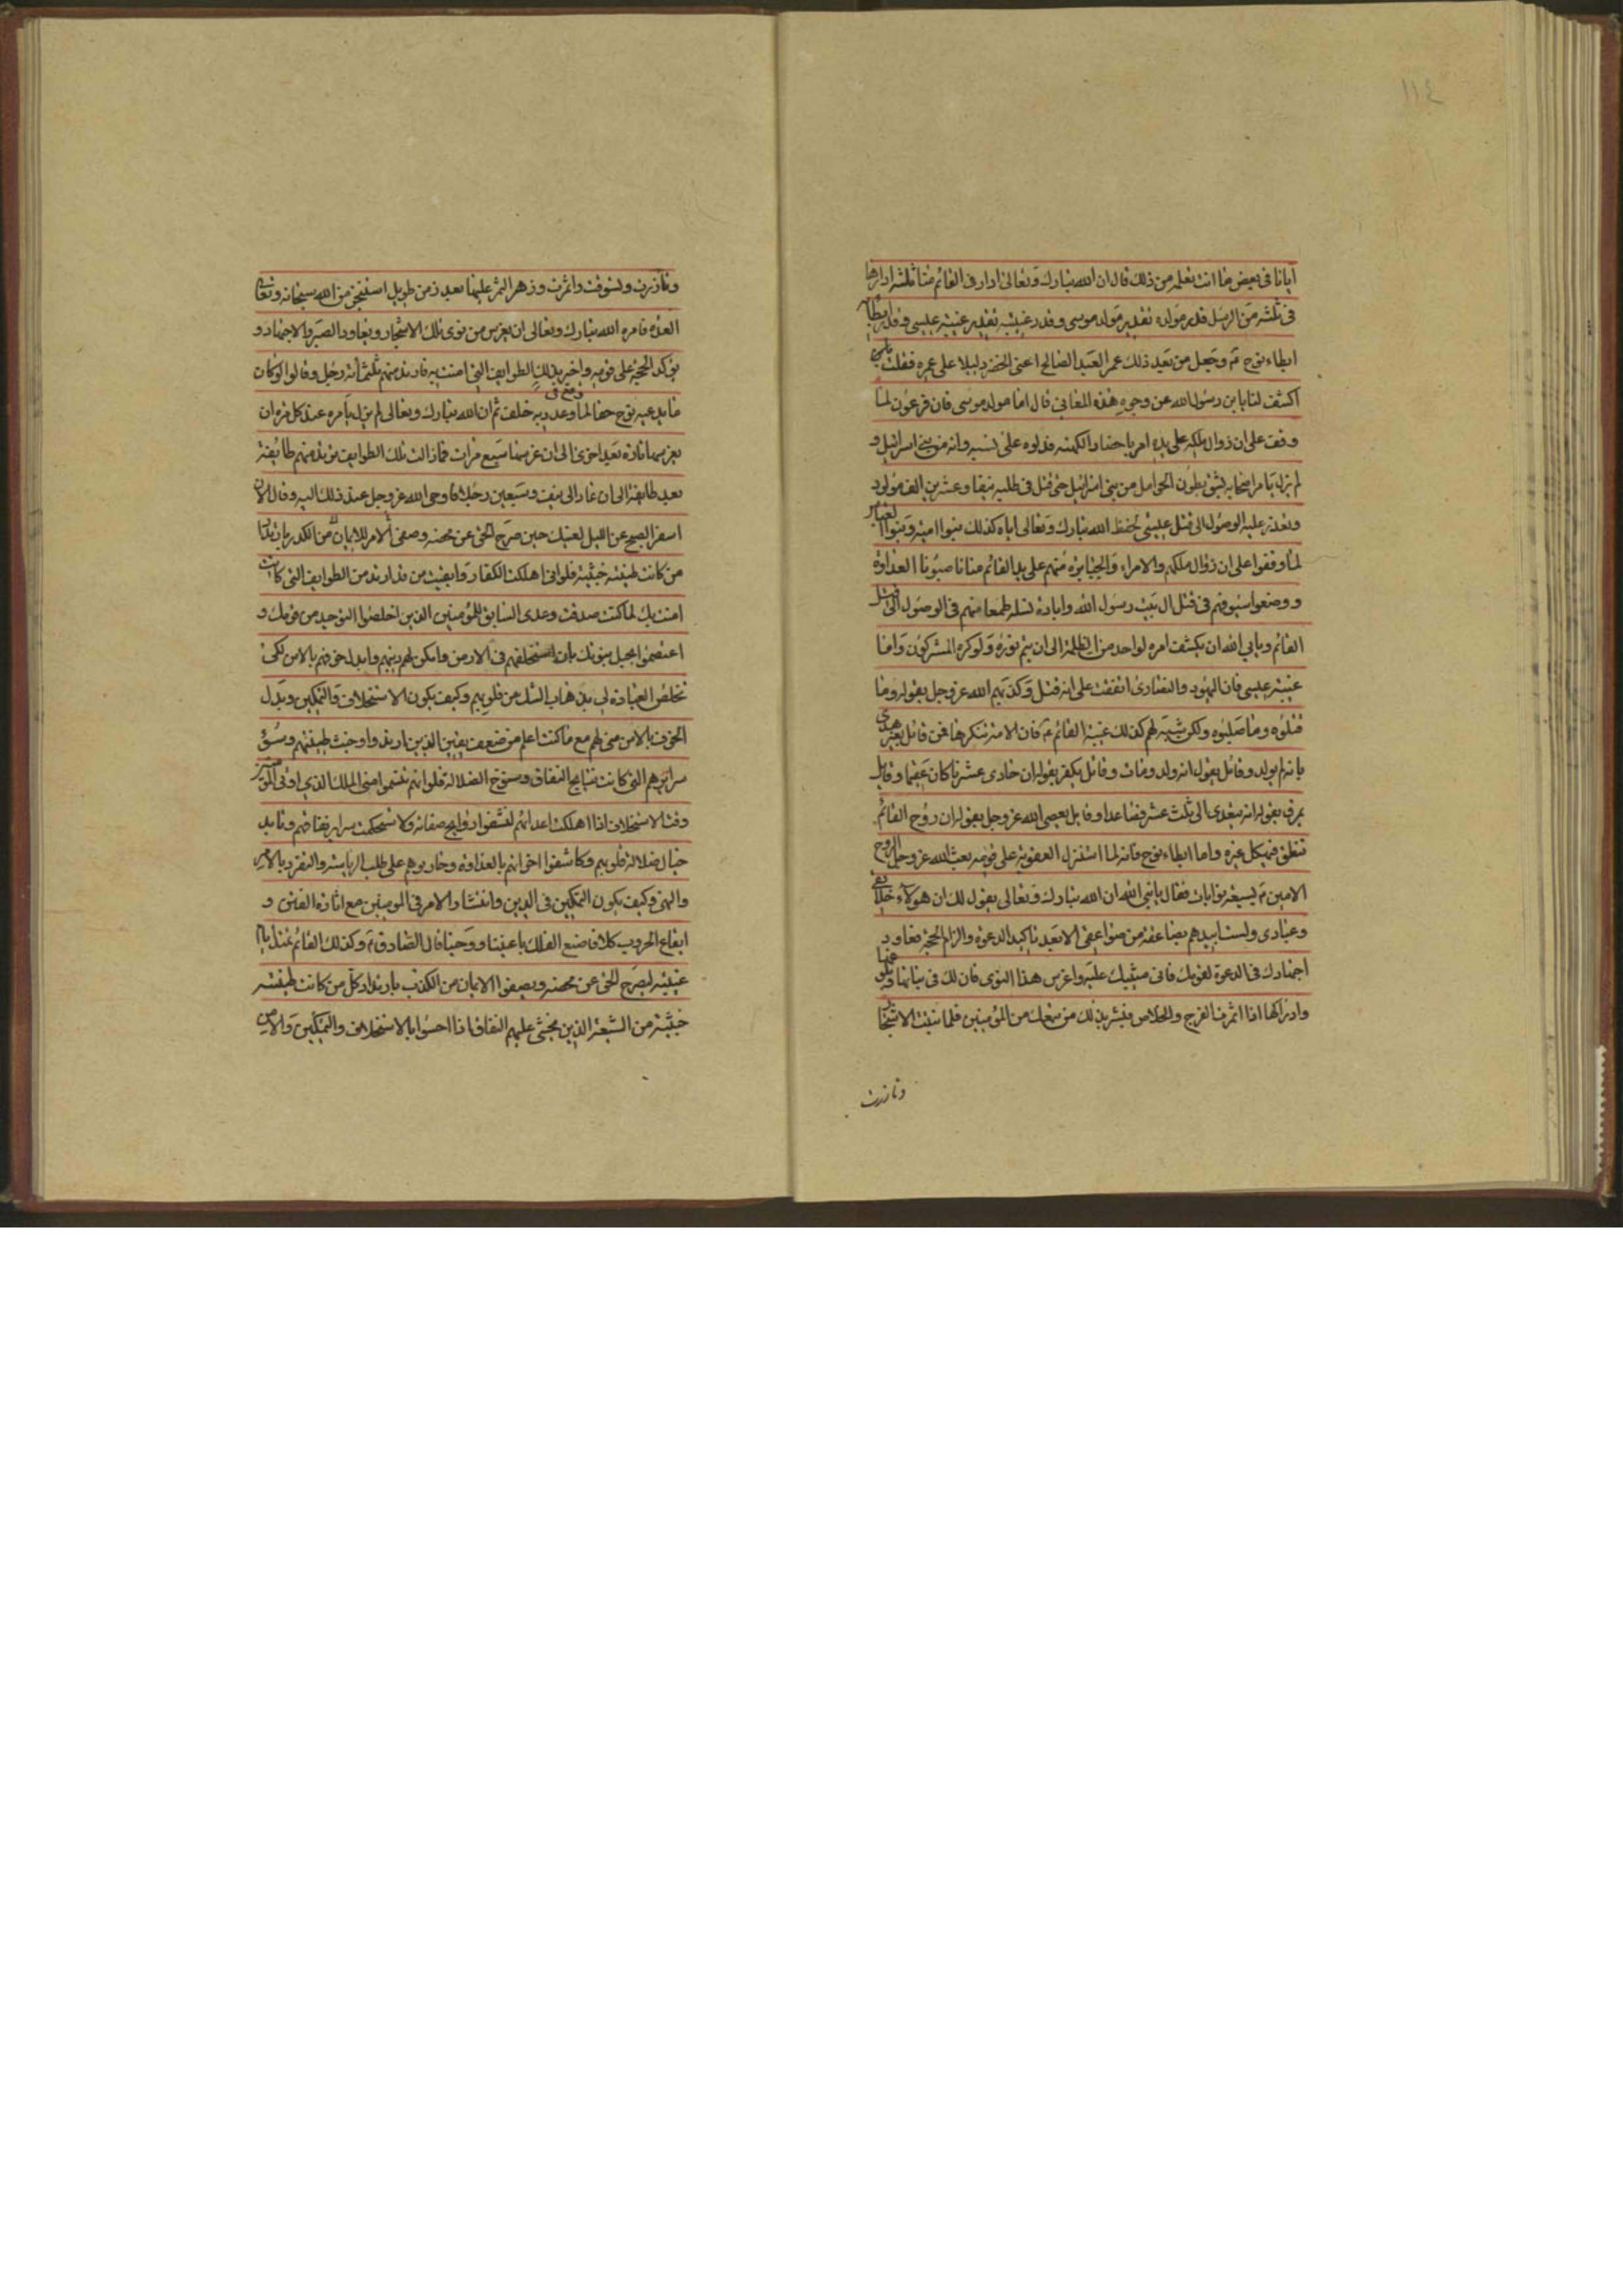 ١١٤
ايانا في بعض ما انت تعلمه من ذلك قال ان الله تبارك وتعالى ادار في القائم منا ثلثه ادارها
في ثلثه من الرسل قدر مولده تقدير مولد موسى وقدر غيبته تقدير غيبة عيسى وقدر ابطاءه
ابطاء نوح ع وجعل من بعد ذلك عمر العبد الصالح اعنى الخضر دليلا على عمره فقلت
اكشف لنا يابن رسول الله عن وجوه هذه المعاني قال اما مولد موسى فان فرعون لما
وقف على ان زوال ملكه على يده امر باحضار الكهنه فدلوه على نسبه وانه من بني اسرائيل و
لم يزل يامر اصحابه بشق بطون الحوامل من بني اسرائيل حتى قتل في طلبه نيفا وعشرين الف مولود
وتعذر عليه الوصول الى قتل عيسى لحفظ الله تبارك وتعالى اياه كذلك بنوا اميه وبنوا العباس
لما وقفوا على ان زوال ملكهم والامراء والجبابرة منهم على يد القائم منا ناصبونا العداوة
ووضعوا سيوفهم في قتل ال بيت رسول الله وابادة نسله طمعا منهم في الوصول الى قتل
القائم ويابى الله ان يكشف امره لواحد من الظلمة الى ان يتم نوره ولو كره المشركون واما
غيبة عيسى فان اليهود والنصارى اتفقت على انه قتل وكذبهم الله عز وجل بقوله وما
قتلوه وما صلبوه ولكن شبه لهم كذلك غيبة القائم ع فان الامة تنكرها فمن قائل بغير هدى
بانه لم يولد وقائل يقول انه ولد ومات وقائل يكفر بقوله ان حادى عشرنا كان عقيما وقايل
يمرق بقوله انه يتعدى الى ثلث عشر فصاعدا وقايل يعصى الله عز وجل بقوله ان روح القائم
تنطق في هيكل غيره واما ابطاء نوح فانه لما استنزل العقوبة على قومه بعث الله عز وجل الروح
الامين ع بسبعة نوايات فقال يا نبي الله ان الله تبارك وتعالى يقول لك ان هؤلاء خلائقي
وعبادى ولست ابيدهم بصاعقة من صواعقى الا بعد تاكيد الدعوة والزام الحجة فعاود
اجتهادك في الدعوة لقومك فاني مثيبك عليه واغرس هذا النوى فان لك في نباتها وبلوغها
وادراكها اذا اثمرت الفرج والخلاص فبشر بذلك من تبعك من المؤمنين فلما نبتت الاشجار
وتازرت
وتازرت وتسوقت واثمرت وزهر الثمر عليها بعد زمن طويل استنجز من الله سبحانه وتعالى
العدة فامره الله تبارك وتعالى ان يغرس من نوى تلك الاشجار ويعاود الصبر والاجتهاد و
يؤكد الحجة على قومه واخبر بذلك الطوايف التى امنت به فارتد منهم ثلثمائة رجل وقالوا لو كان
ما يدعيه نوح حقا لما وقع في وعد ربه خلف ثم ان الله تبارك وتعالى لم يزل يامره عند كل مرة ان
يغرسها تارة بعد اخرى الى ان غرسها سبع مرات فما زالت تلك الطوايف ترتد منهم طائفة
بعد طايفة الى ان عاد الى نيف وسبعين رجلا فاوحى الله عز وجل عند ذلك اليه وقال الان
اسفر الصبح عن الليل لعينك حين صرح الحق عن محضه وصفى الامر للايمان من الكدر بارتداد
من كانت طينته خبيثة فلو اني اهلكت الكفار وابقيت من قد ارتد من الطوايف التي كانت
امنت بك لما كنت صدقت وعدى السابق للمؤمنين الذين اخلصوا التوحيد من قومك و
اعتصموا بحبل نبوتك بان استخلفهم في الارض وامكن لهم دينهم وابدل خوفهم بالامن لكى
تخلص العبادة لى بذهاب الشك من قلوبهم وكيف يكون الاستخلاف والتمكين وبدل
الخوف بالامن منى لهم مع ما كنت اعلم من ضعف يقين الذين ارتدوا وخبث طينتهم وسوء
سرايرهم التى كانت نتايج النفاق وسنوح الضلالة فلو انهم تنسموا منى الملك الذى اوتى المؤمنين
وقت الاستخلاف اذا اهلكت اعدائهم لنشقوا روايح صفاته ولاستحكمت سراير نفاقهم وتابد
حبال ضلالة قلوبهم وكاشفوا اخوانهم بالعداوة وحاربوهم على طلب الرياسة والتفرد بالامر
والنهى وكيف يكون التمكين في الدين وانتشار الامر في المومنين مع اثارة الفتن و
ايقاع الحروب كلا فاصنع الفلك باعيننا ووحينا قال الصادق ع وكذلك القائم تمتد ايام
غيبته ليصرح الحق عن محضه ويصفوا الايمان من الكذب بارتداد كل من كانت طينته
خبيثة من الشيعة الذين يخشى عليهم النفاق اذا احسوا بالاستخلاف والتمكين والامن